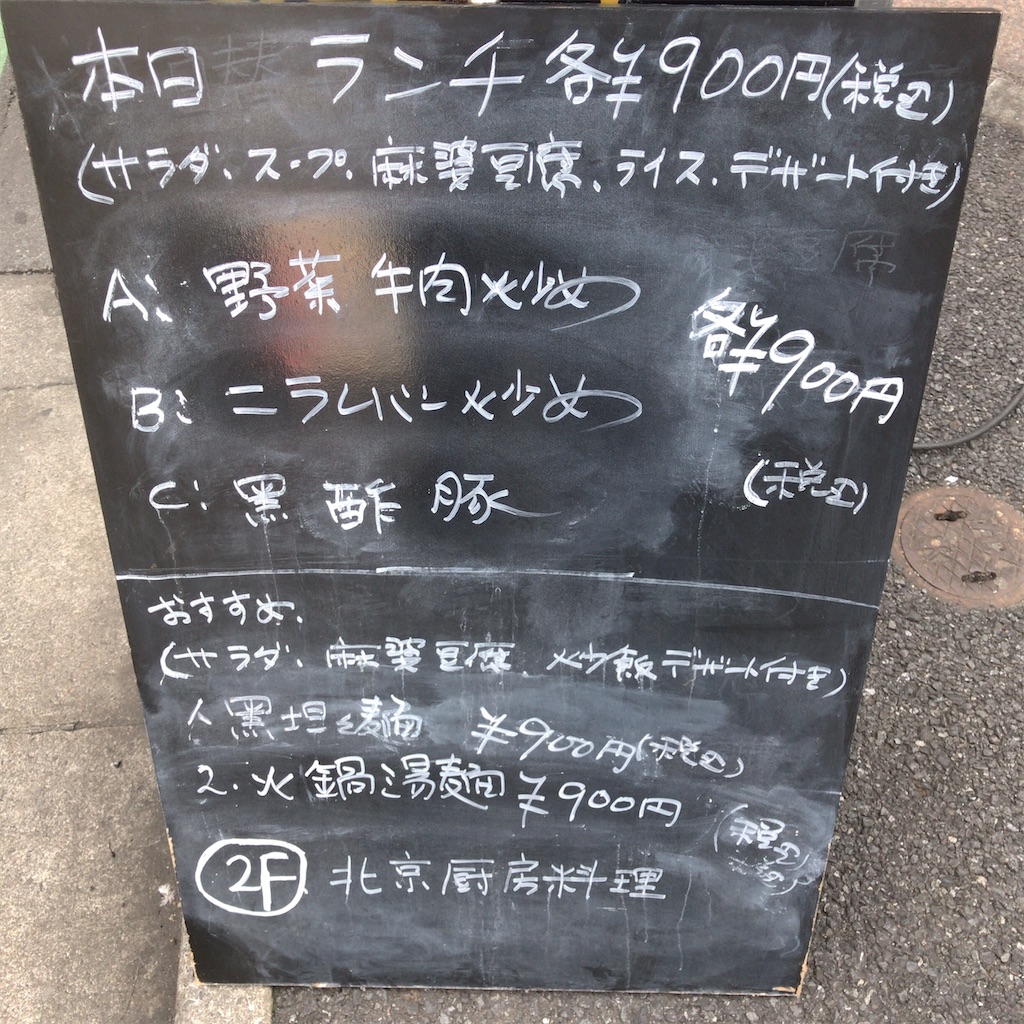 本日 ランチ 各¥900円(税込)
(サラダ、スープ、麻婆豆腐、ライス、デザート付き)
A: 野菜 牛肉炒め
B: ニラレバー炒め
各¥900円
C: 黒酢豚
(税込)
おすすめ、
(サラダ、麻婆豆腐、炒飯デザート付き)
1、黒坦々麺 ¥900円(税込)
2. 火鍋湯麺 ¥900円
(税込)
2F 北京厨房料理